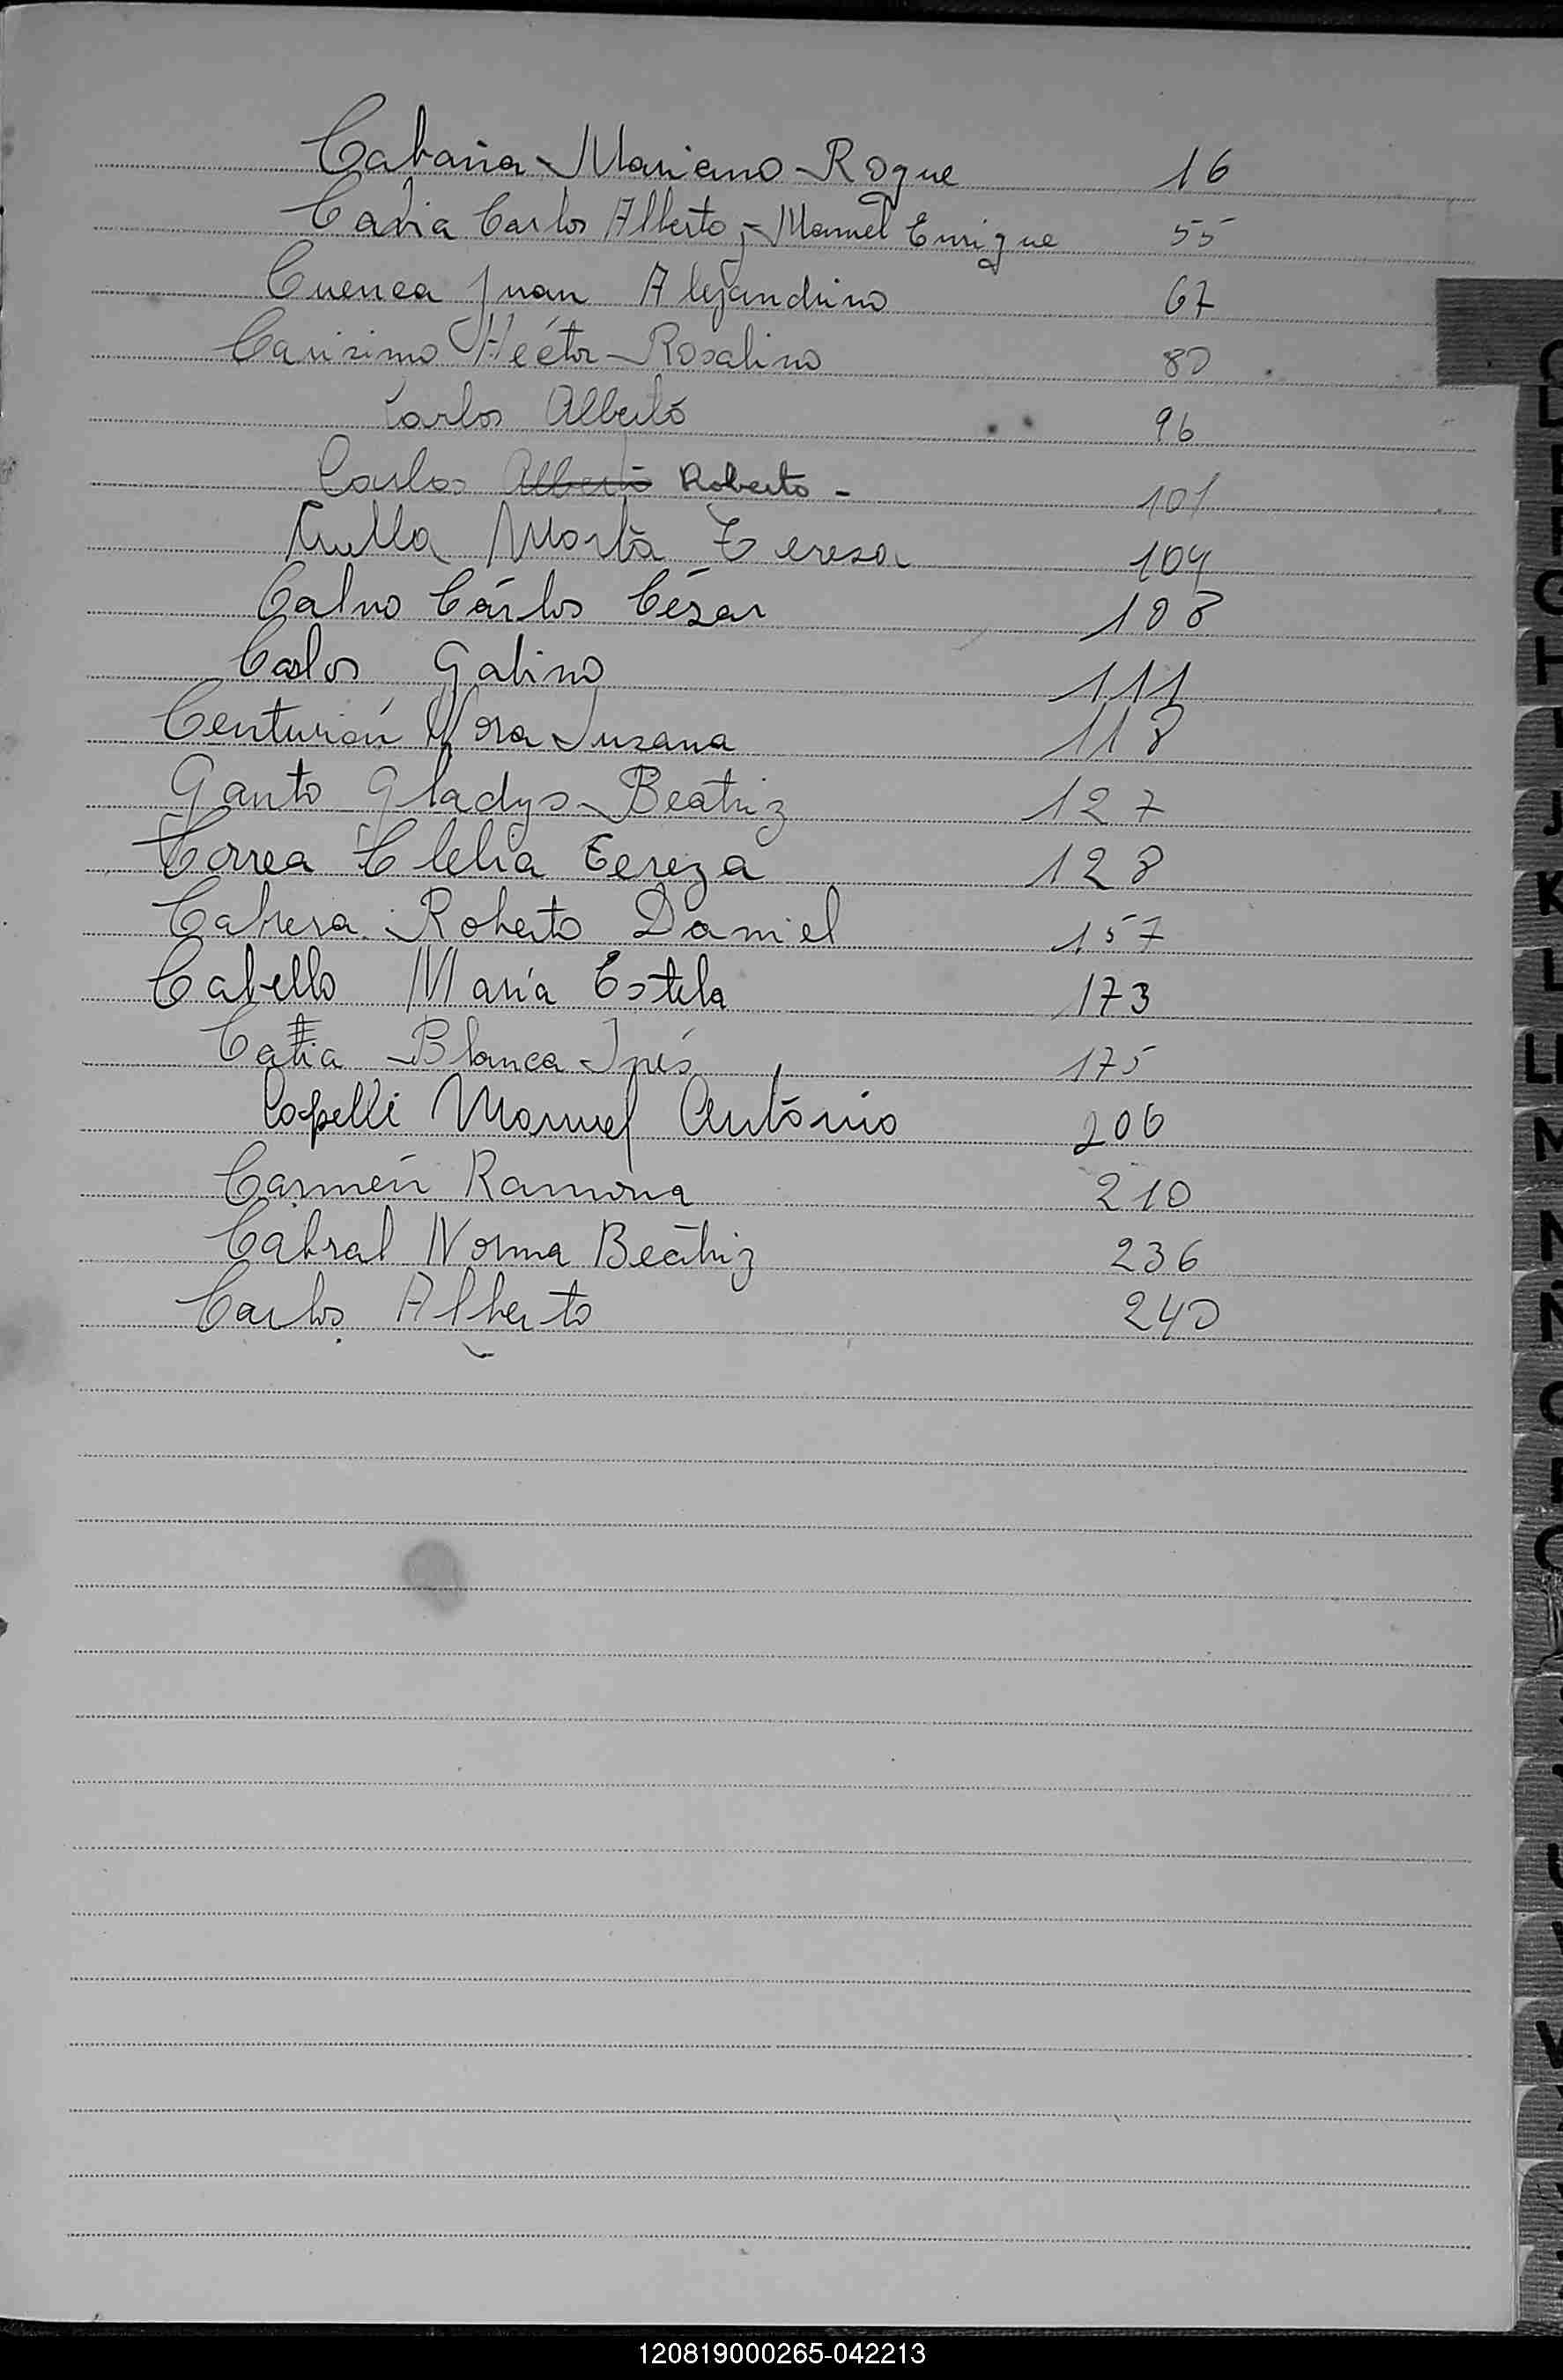 Cabaña Mariano Roque 16
Cavia Carlos Alberto y Manuel Enrique 55
Cuenca Juan Alejandrino 67
Carisimo Héctor Rosalino 80
Carlos Alberto 96
Carlos Alberto Roberto - 101
Marta Teresa 104
Calvo Cárlos César 108
Carlos Gabino 111
Centurión Nora Susana 118
Ganto Gladys Beatriz 127
Correa Clelia Tereza 128
Cabrera Roberto Daniel 157
Cabello María Estela 173
Blanca Inés 175
Capelli Manuel Antonio 206
Carmen Ramona 210
Cabral Norma Beatriz 236
Carlos Alberto 240
C
D
E
F
G
H
I
J
K
L
LL
M
N
Ñ
O
P
Q
U
V
120819000265-042213